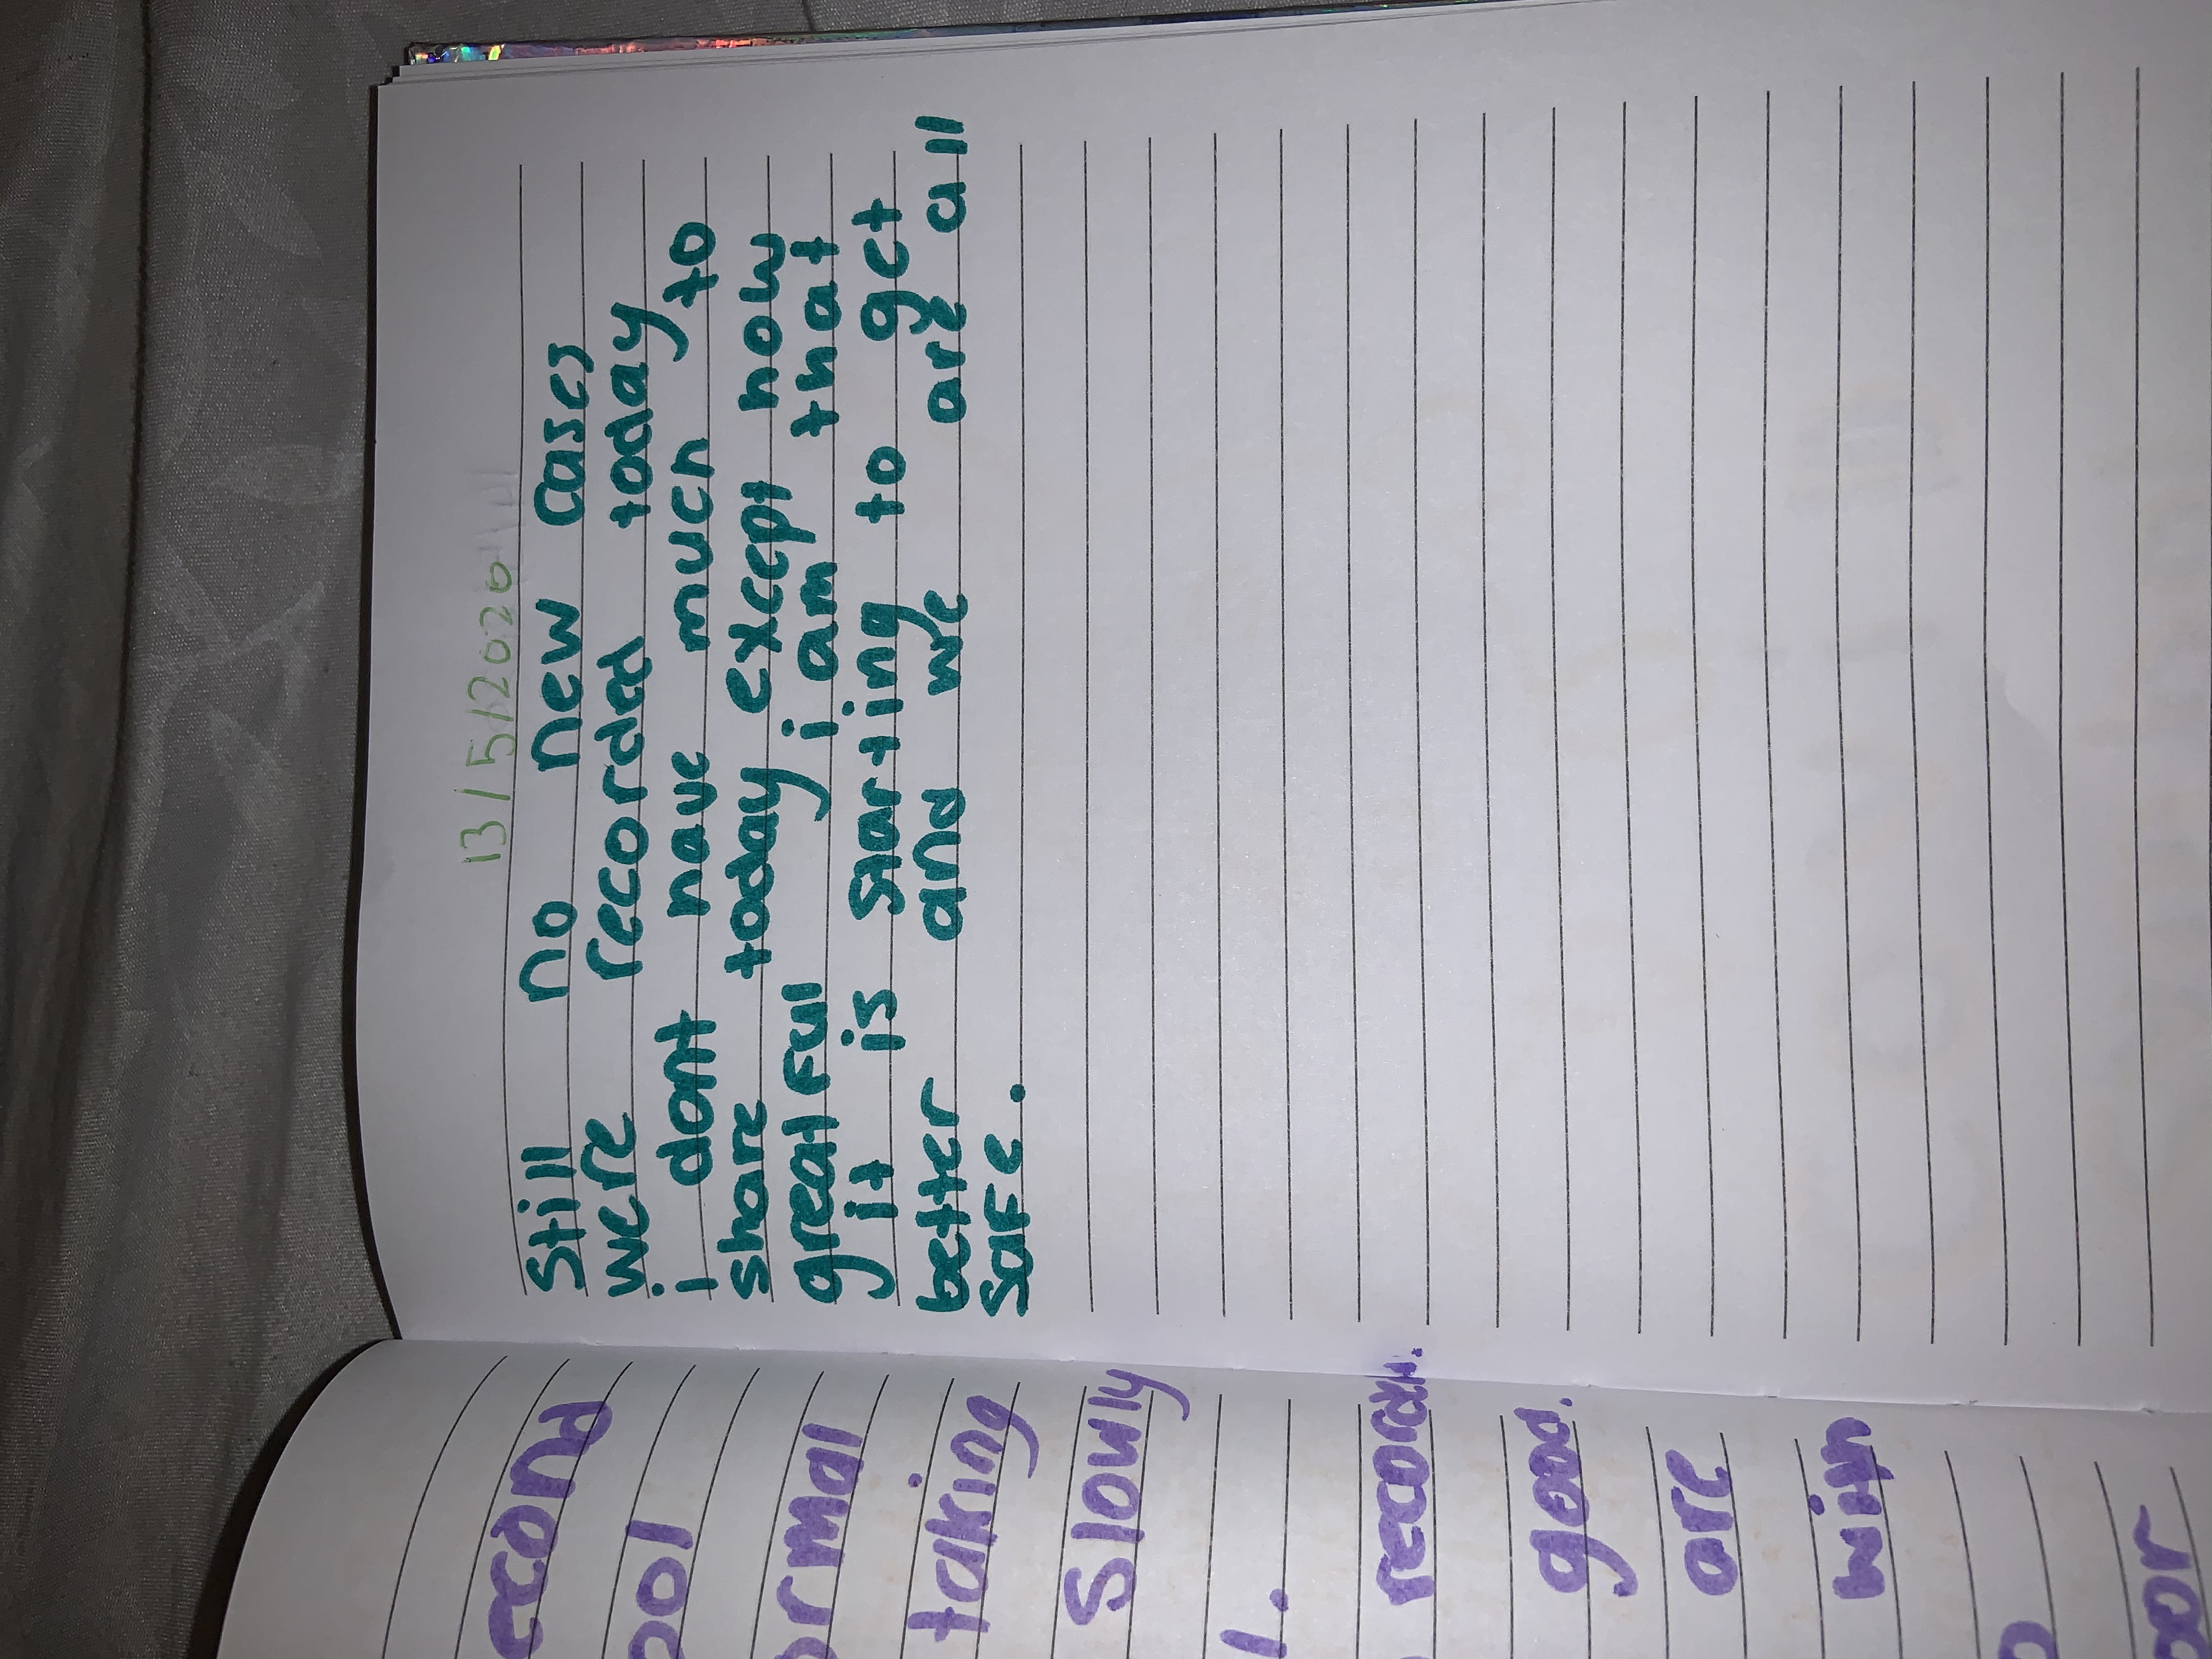 econd
ool
ormal
taking
slowly
1.
good.
are
with
oor
13/5/2020
Still no new cases
were recorded today
i dont have much to
share today except how
greatful i am that
it is starting to get
better and we are all
safe.